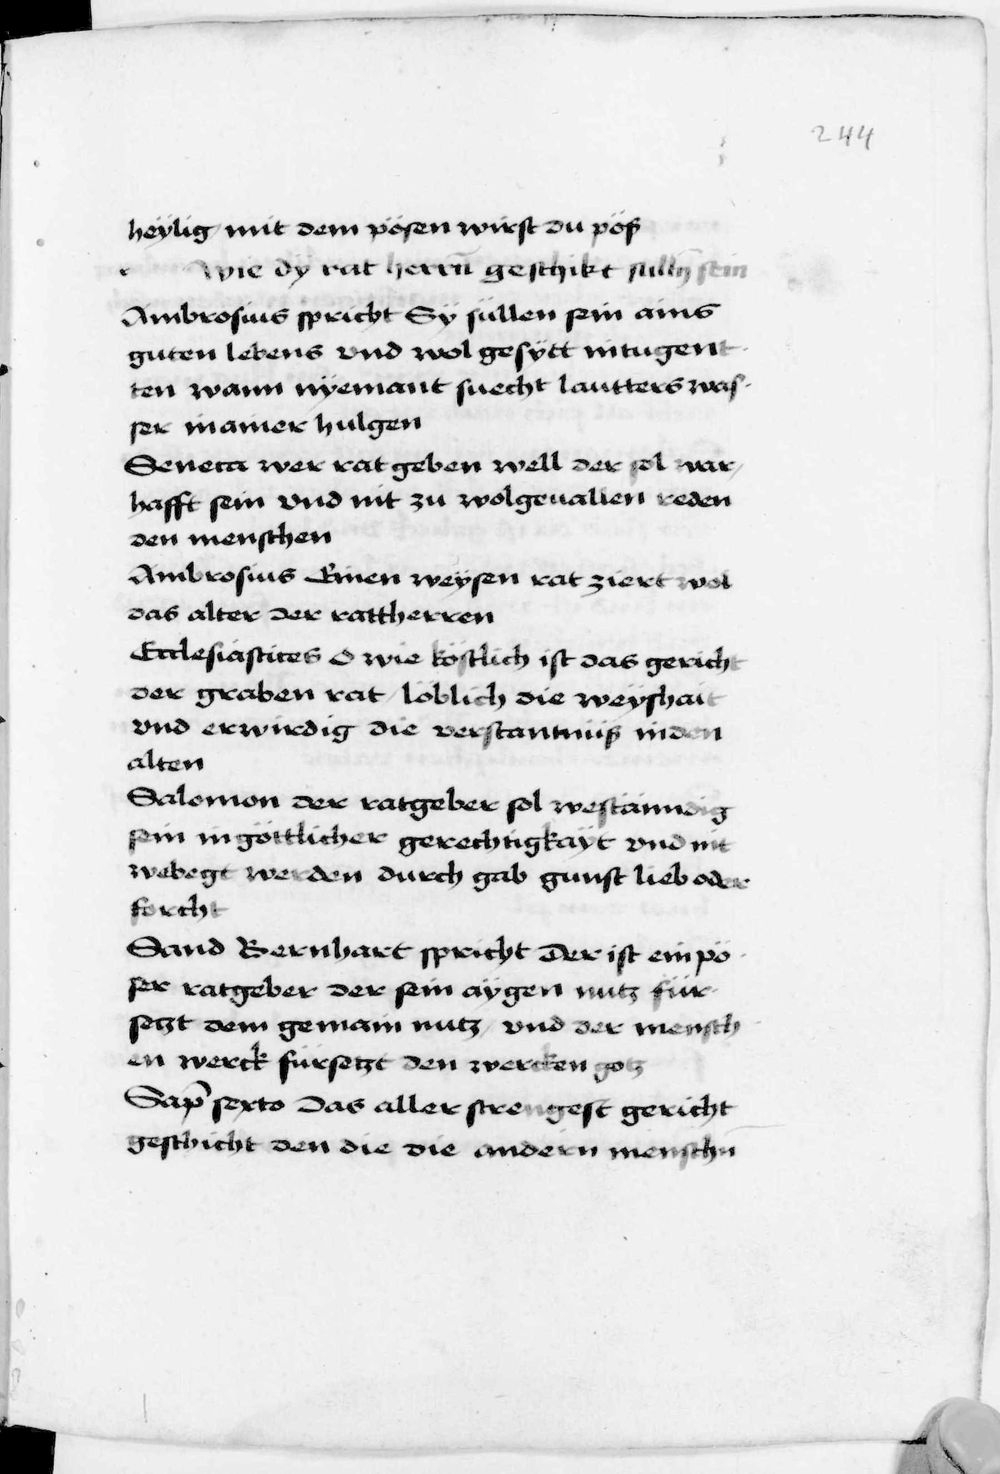 244
heÿlig mit dem pösen wirst du pöß
Wie dÿ rat herrñ geschikt sullñ sein
Ambrosius spricht Sÿ süllen sein ains
guten lebens vnd wol gesÿtt in tugent
ten wann nÿemant suecht lautters was-
ser in ainer hulgen
Seneca wer rat geben well der sol war/
hafft sein vnd nit zu wolgeuallen reden
den menschen
Ambrosius Einen weÿsen rat ziert wol
das alter der rattherren
Ecclesiastices O wie köstlich ist das gericht
der graben rat / löblich die weÿshait
vnd erwirdig die verstantnüß in den
alten
Salomon der ratgeber sol westänndig
sein in göttlicher gerechtigkaÿt vnd nit
webegt werden durch gab gunst lieb oder
forcht
Sand Bernhart spricht Der ist ein pö-
ser ratgeber der sein aÿgen nutz für-
setzt dem gemain nutz / vnd der mensch
en werck fürsetzt den wercken gotz
Sap̄ sexto Das aller strengest gericht
geschicht den die die andern menschñ